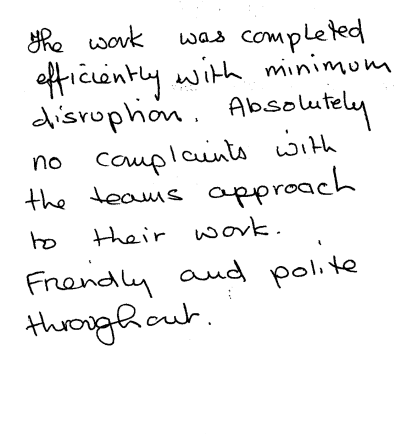 The work was completed
efficiently with minimum
disruption. Absolutely
no complaints with
the teams approach
to their work.
Friendly and polite
throughout.